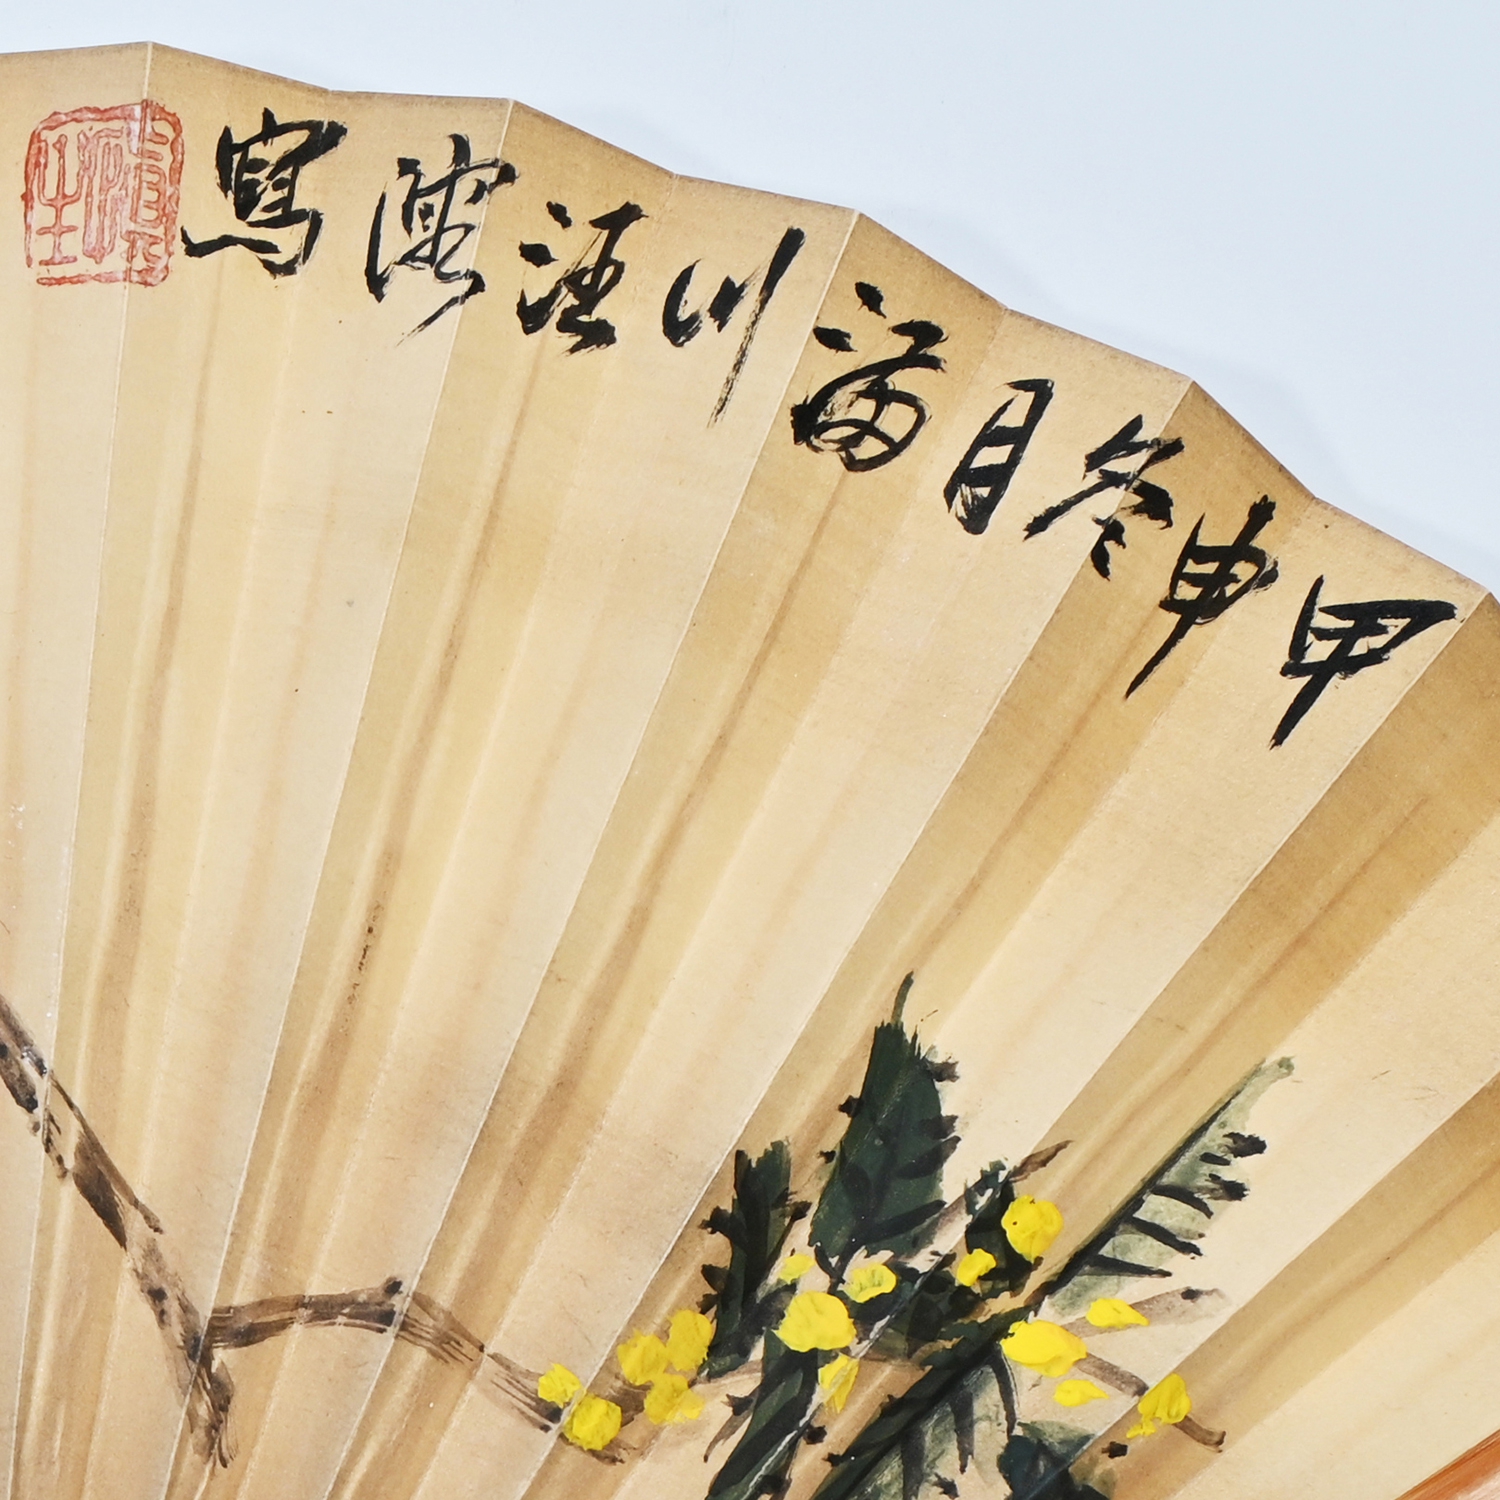 甲申冬月蒲川汪濙寫